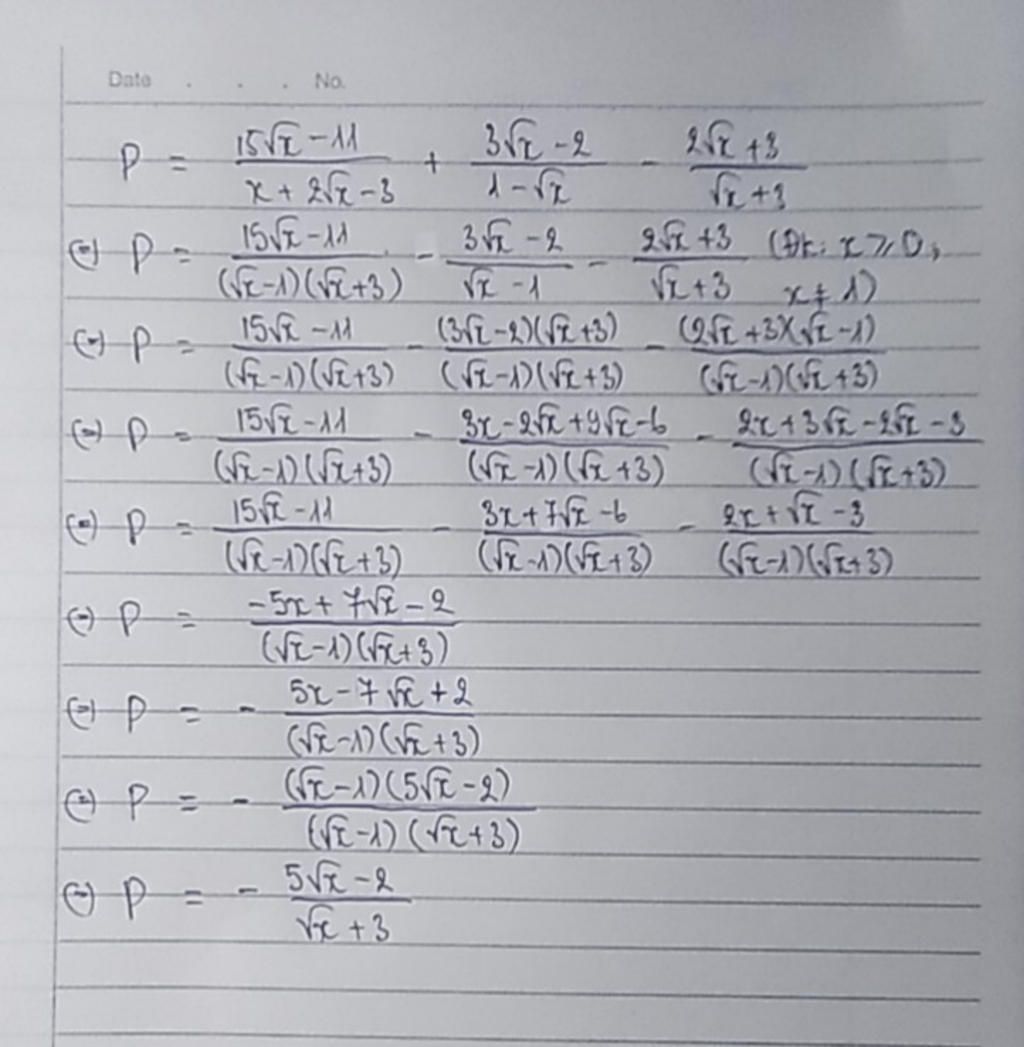 Date . . . No.
P = (15√x - 11)/(x + 2√x - 3) + (3√x - 2)/(1 - √x) - (2√x + 3)/(√x + 3)
(=) P = (15√x - 11)/((√x - 1)(√x + 3)) - (3√x - 2)/(√x - 1) - (2√x + 3)/(√x + 3) (Đk: x ⩾ 0, x ≠ 1)
(=) P = (15√x - 11)/((√x - 1)(√x + 3)) - ((3√x - 2)(√x + 3))/((√x - 1)(√x + 3)) - ((2√x + 3)(√x - 1))/((√x - 1)(√x + 3))
(=) P = (15√x - 11)/((√x - 1)(√x + 3)) - (3x - 2√x + 9√x - 6)/((√x - 1)(√x + 3)) - (2x + 3√x - 2√x - 3)/((√x - 1)(√x + 3))
(=) P = (15√x - 11)/((√x - 1)(√x + 3)) - (3x + 7√x - 6)/((√x - 1)(√x + 3)) - (2x + √x - 3)/((√x - 1)(√x + 3))
(=) P = (-5x + 7√x - 2)/((√x - 1)(√x + 3))
(=) P = - (5x - 7√x + 2)/((√x - 1)(√x + 3))
(=) P = - ((√x - 1)(5√x - 2))/((√x - 1)(√x + 3))
(=) P = - (5√x - 2)/(√x + 3)